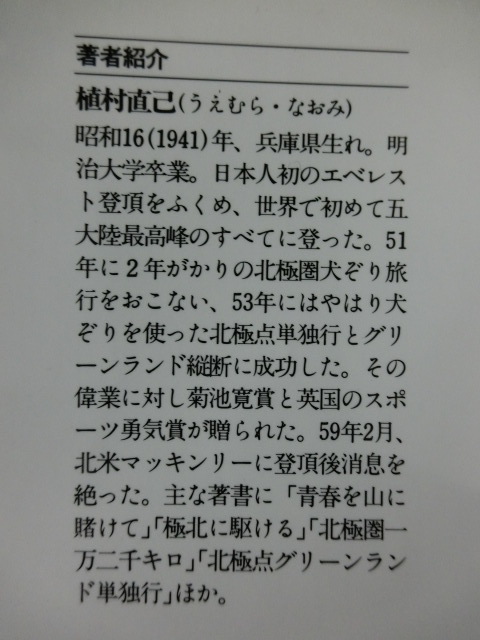 著者紹介
植村直己(うえむら・なおみ)
昭和16(1941)年、兵庫県生れ。明
治大学卒業。日本人初のエベレス
ト登頂をふくめ、世界で初めて五
大陸最高峰のすべてに登った。51
年に2年がかりの北極圏犬ぞり旅
行をおこない、53年にはやはり犬
ぞりを使った北極点単独行とグリ
ーンランド縦断に成功した。その
偉業に対し菊池寛賞と英国のスポ
ーツ勇気賞が贈られた。59年2月、
北米マッキンリーに登頂後消息を
絶った。主な著書に「青春を山に
賭けて」「極北に駆ける」「北極圏一
万二千キロ」「北極点グリーンラン
ド単独行」ほか。